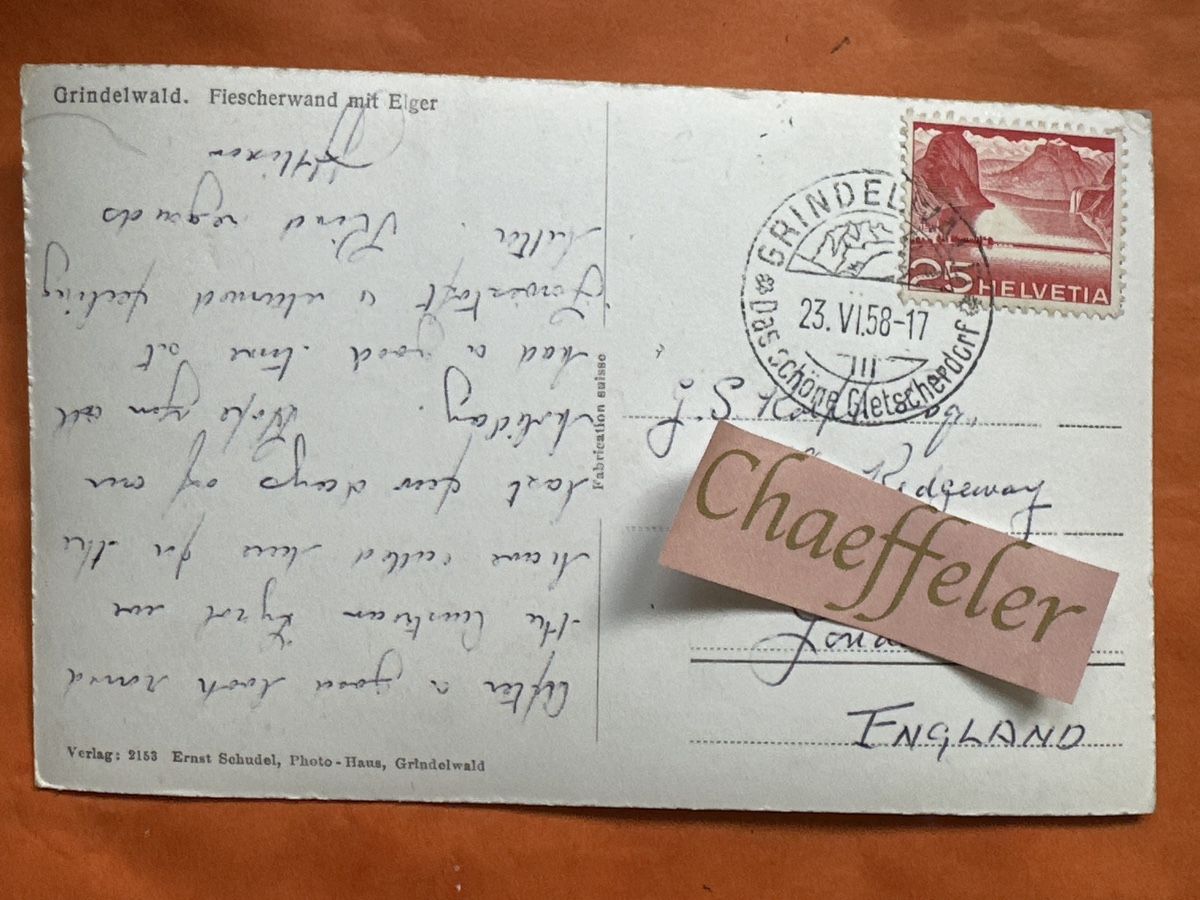 Grindelwald. Fiescherwand mit Eiger
After a good look round
the Austrian Tyrol we
have called here for the
last few days of our
holiday. Hope you all
had a good time at
a reunion feeling
better. Kind regards
Fabrication suisse
Verlag: 2153 Ernst Schudel, Photo-Haus, Grindelwald
GRINDEL
23. VI. 58-17
III
Das schöne Gletscherdorf
25 HELVETIA
G. S.
Ridgeway
Chaeffeler
Lond
ENGLAND